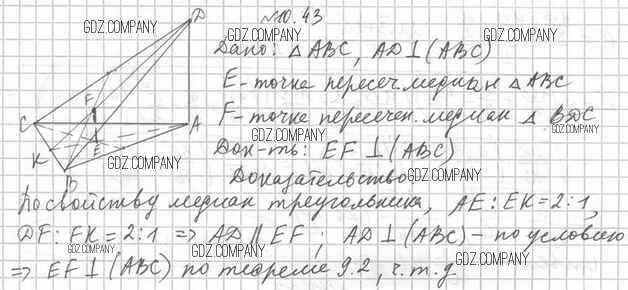 №10.43
Дано: △ABC, AD⊥(ABC)
E - точка пересеч. медиан △ABC
F - точка пересечен. медиан △ BDC
Док-ть: EF⊥(ABC)
Доказательство
По свойству медиан треугольника, AE:EK=2:1,
DF:FK=2:1 ⇒ AD∥EF; AD⊥(ABC) - по условию
⇒ EF⊥(ABC) по теореме 9.2, ч.т.д.
D
F
C
A
E
K
B
GDZ.COMPANY
GDZ.COMPANY
GDZ.COMPANY
GDZ.COMPANY
GDZ.COMPANY
GDZ.COMPANY
GDZ.COMPANY
GDZ.COMPANY
GDZ.COMPANY
GDZ.COMPANY
GDZ.COMPANY
GDZ.COMPANY
GDZ.COMPANY